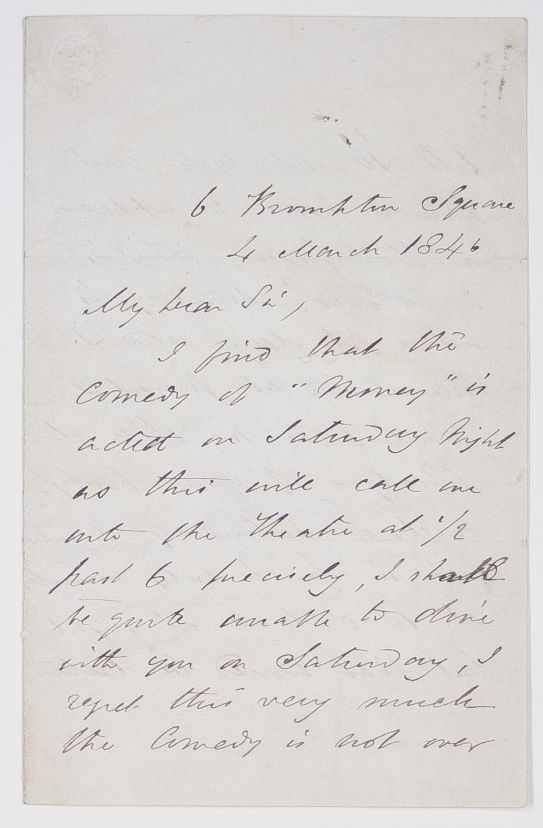 6 Brompton Square
4 March 1846
My Dear Sir,
I find that the
Comedy of "Money" is
acted on Saturday Night
as this will call me
into the Theatre at 1/2
past 6 precisely, I shall
be quite unable to dine
with you on Saturday, I
regret this very much
the Comedy is not over